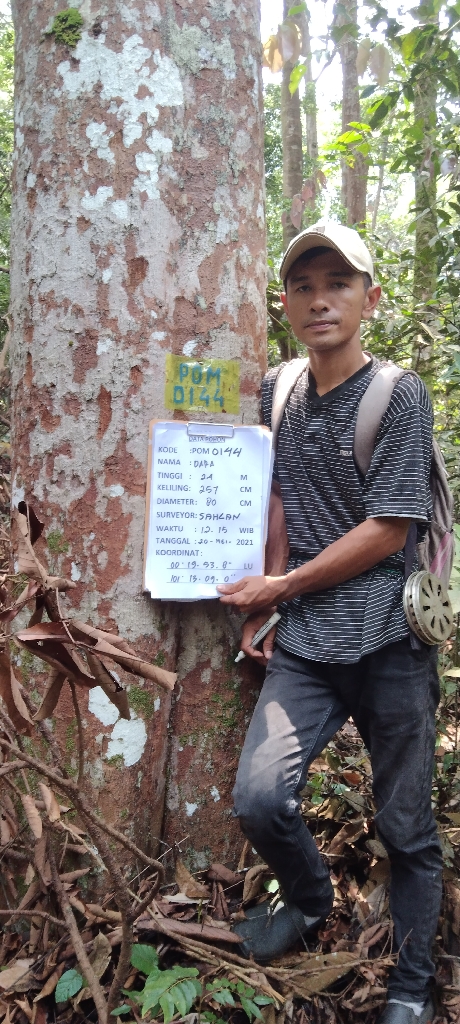 POM
0144
DATA POHON
KODE : POM 0144
NAMA : DARA
TINGGI : 24 M
KELILING: 257 CM
DIAMETER: 80 CM
SURVEYOR: SAHLAN
WAKTU : 12.15 WIB
TANGGAL : 20-Mei- 2021
KOORDINAT:
00° 19. 53. 8" LU
101° 15. 09. 0"